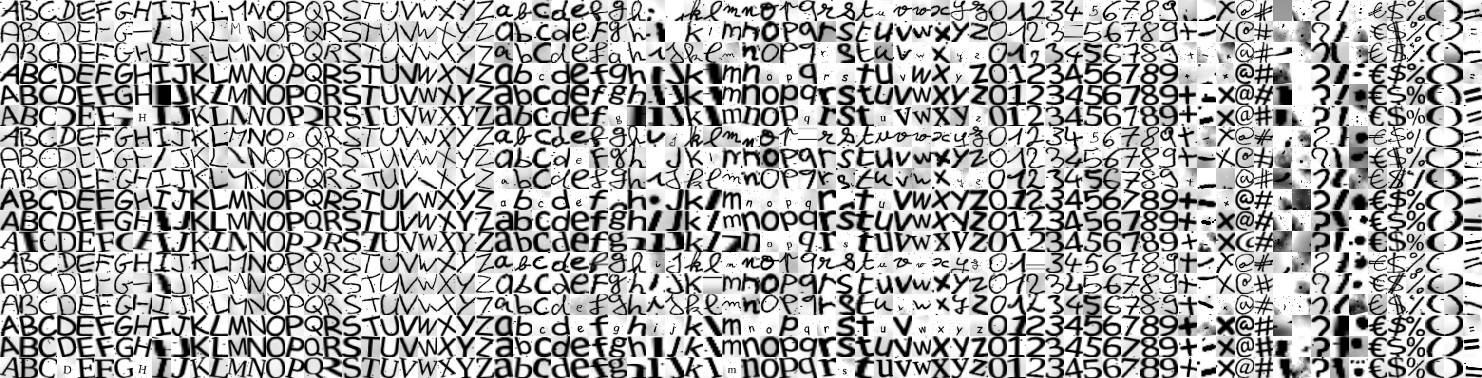 ABCDEFGHIJKLMNOPQRSTUVWXYZabcdefghijklmnopqrstuvwxyz0123456789+-X@#?/:€$%()=
ABCDEFGHIJKLMNOPQRSTUVWXYZabcdefghijklmnopqrstuvwxyz0123456789+-X@#?/:€$%()=
ABCDEFGHIJKLMNOPQRSTUVWXYZabcdefghijklmnopqrstuvwxyz0123456789+-X@#?/:€$%()=
ABCDEFGHIJKLMNOPQRSTUVWXYZabcdefghijklmnopqrstuvwxyz0123456789+-X@#?/:€$%()=
ABCDEFGHIJKLMNOPQRSTUVWXYZabcdefghijklmnopqrstuvwxyz0123456789+-X@#?/:€$%()=
ABCDEFGHIJKLMNOPQRSTUVWXYZabcdefghijklmnopqrstuvwxyz0123456789+-X@#?/:€$%()=
ABCDEFGHIJKLMNOPQRSTUVWXYZabcdefghijklmnopqrstuvwxyz0123456789+-X@#?/:€$%()=
ABCDEFGHIJKLMNOPQRSTUVWXYZabcdefghijklmnopqrstuvwxyz0123456789+-X@#?/:€$%()=
ABCDEFGHIJKLMNOPQRSTUVWXYZabcdefghijklmnopqrstuvwxyz0123456789+-X@#?/:€$%()=
ABCDEFGHIJKLMNOPQRSTUVWXYZabcdefghijklmnopqrstuvwxyz0123456789+-X@#?/:€$%()=
ABCDEFGHIJKLMNOPQRSTUVWXYZabcdefghijklmnopqrstuvwxyz0123456789+-X@#?/:€$%()=
ABCDEFGHIJKLMNOPQRSTUVWXYZabcdefghijklmnopqrstuvwxyz0123456789+-X@#?/:€$%()=
ABCDEFGHIJKLMNOPQRSTUVWXYZabcdefghijklmnopqrstuvwxyz0123456789+-X@#?/:€$%()=
ABCDEFGHIJKLMNOPQRSTUVWXYZabcdefghijklmnopqrstuvwxyz0123456789+-X@#?/:€$%()=
ABCDEFGHIJKLMNOPQRSTUVWXYZabcdefghijklmnopqrstuvwxyz0123456789+-X@#?/:€$%()=
ABCDEFGHIJKLMNOPQRSTUVWXYZabcdefghijklmnopqrstuvwxyz0123456789+-X@#?/:€$%()=
ABCDEFGHIJKLMNOPQRSTUVWXYZabcdefghijklmnopqrstuvwxyz0123456789+-X@#?/:€$%()=
ABCDEFGHIJKLMNOPQRSTUVWXYZabcdefghijklmnopqrstuvwxyz0123456789+-X@#?/:€$%()=